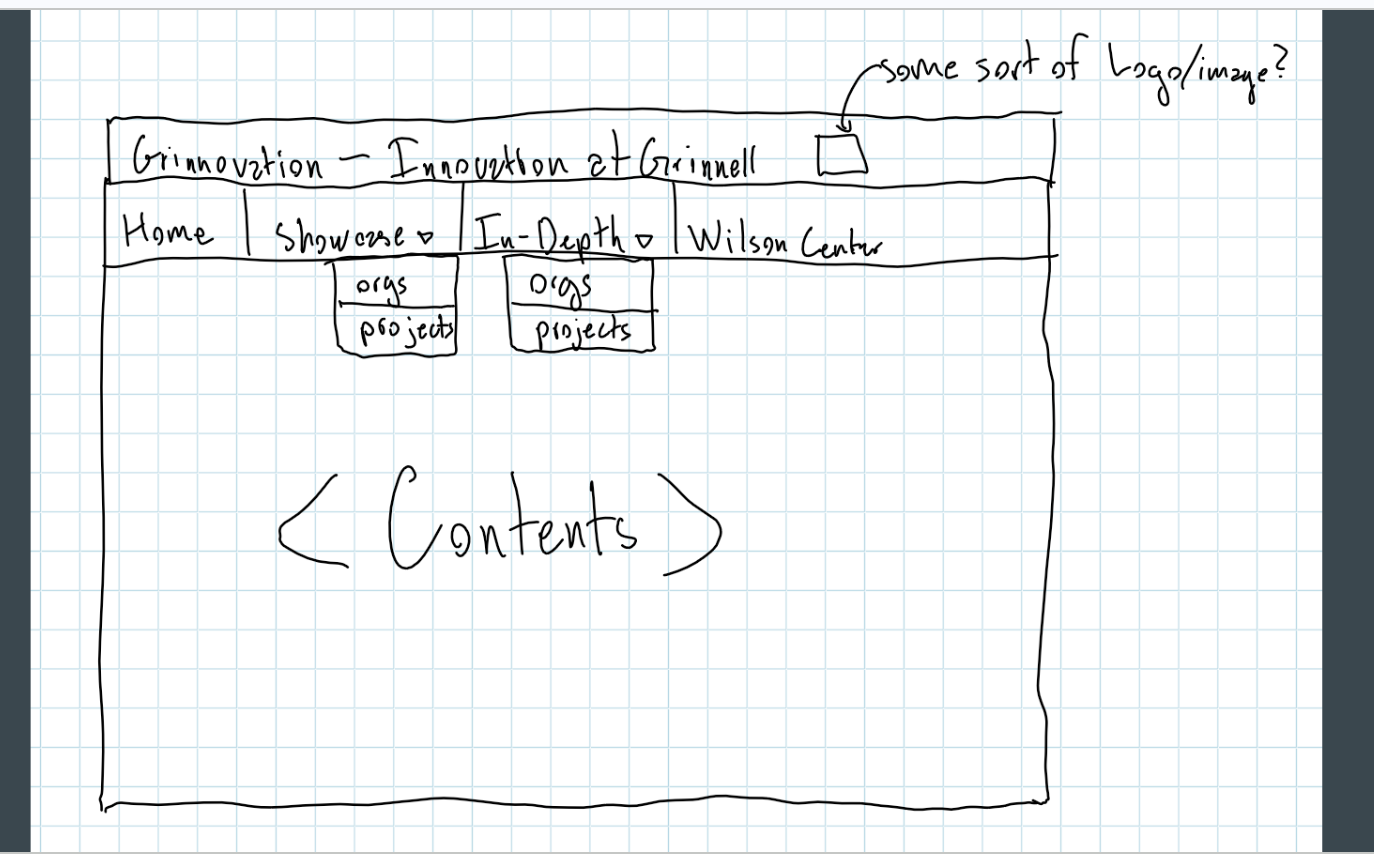 some sort of Logo/image?
Grinnovation — Innovation at Grinnell
Home Showcase ▿ In-Depth ▿ Wilson Center
orgs orgs
projects projects
< Contents >